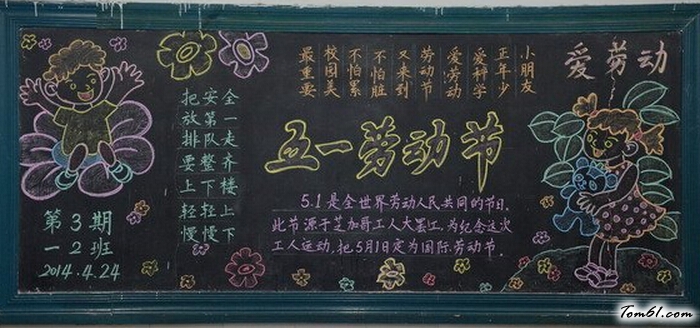 小朋友
正年少
爱科学
爱劳动
劳动节
又来到
不怕脏
不怕累
校园美
最重要
爱劳动
把安全
放第一
排队走
要整齐
上下楼
轻轻上
慢慢下
五一劳动节
5.1是全世界劳动人民共同的节日。
此节源于芝加哥工人大罢工,为纪念这次
工人运动,把5月1日定为国际劳动节。
第3期
一2班
2014.4.24
Tom61.com